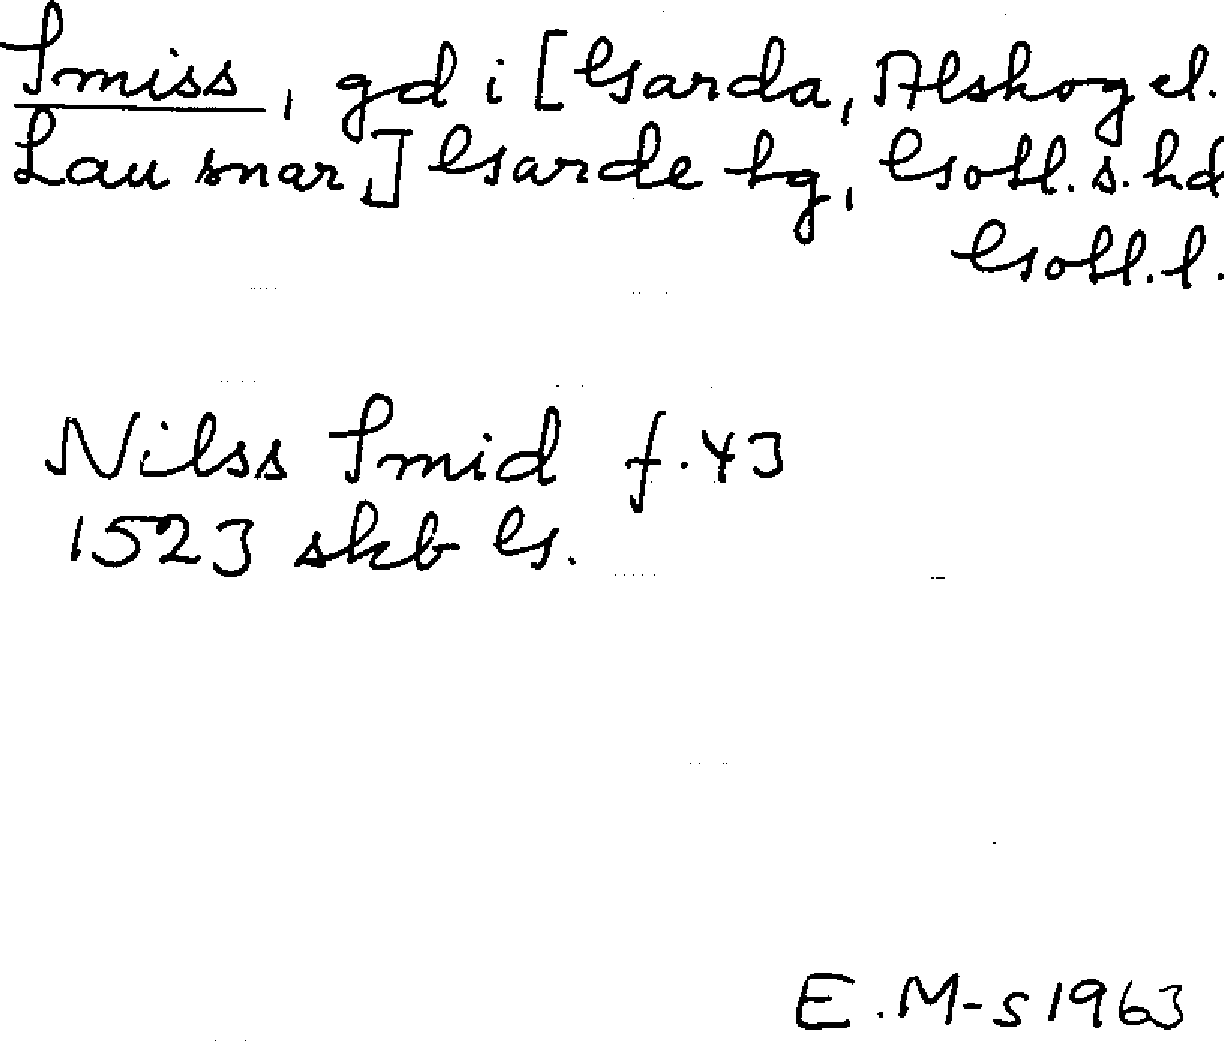 Smiss, gd i [Garda, Alskog el.
Lau snar,] Garde tg, Gotl. s. hd
Gotl. l.
Nilss Smid f. 43
1523 skb G.
E.M-s 1963